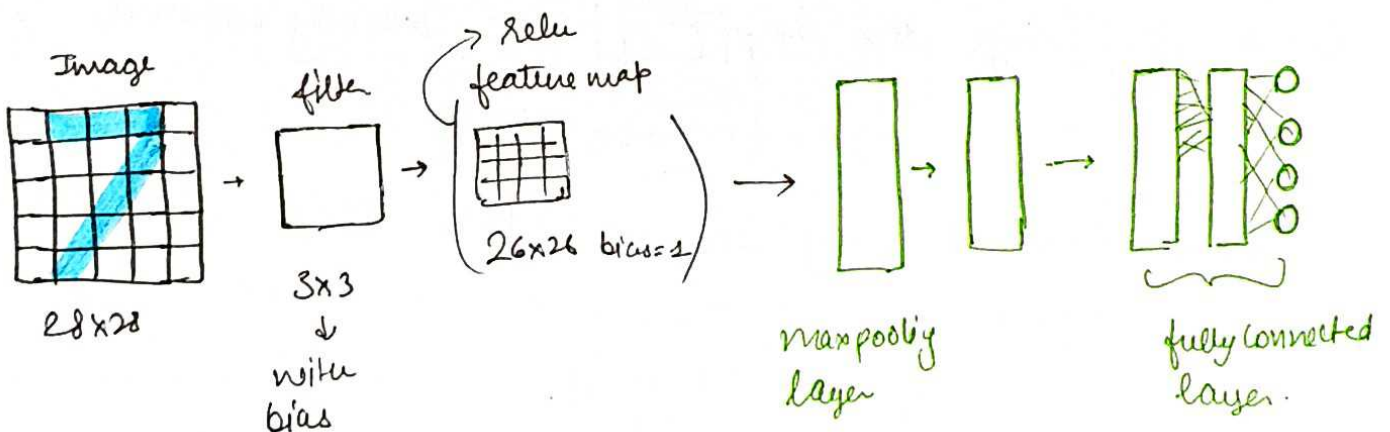 Image
28x28
filter
3x3
↓
with
bias
relu
feature map
26x26 bias=1
maxpooling
layer
fully connected
layer.